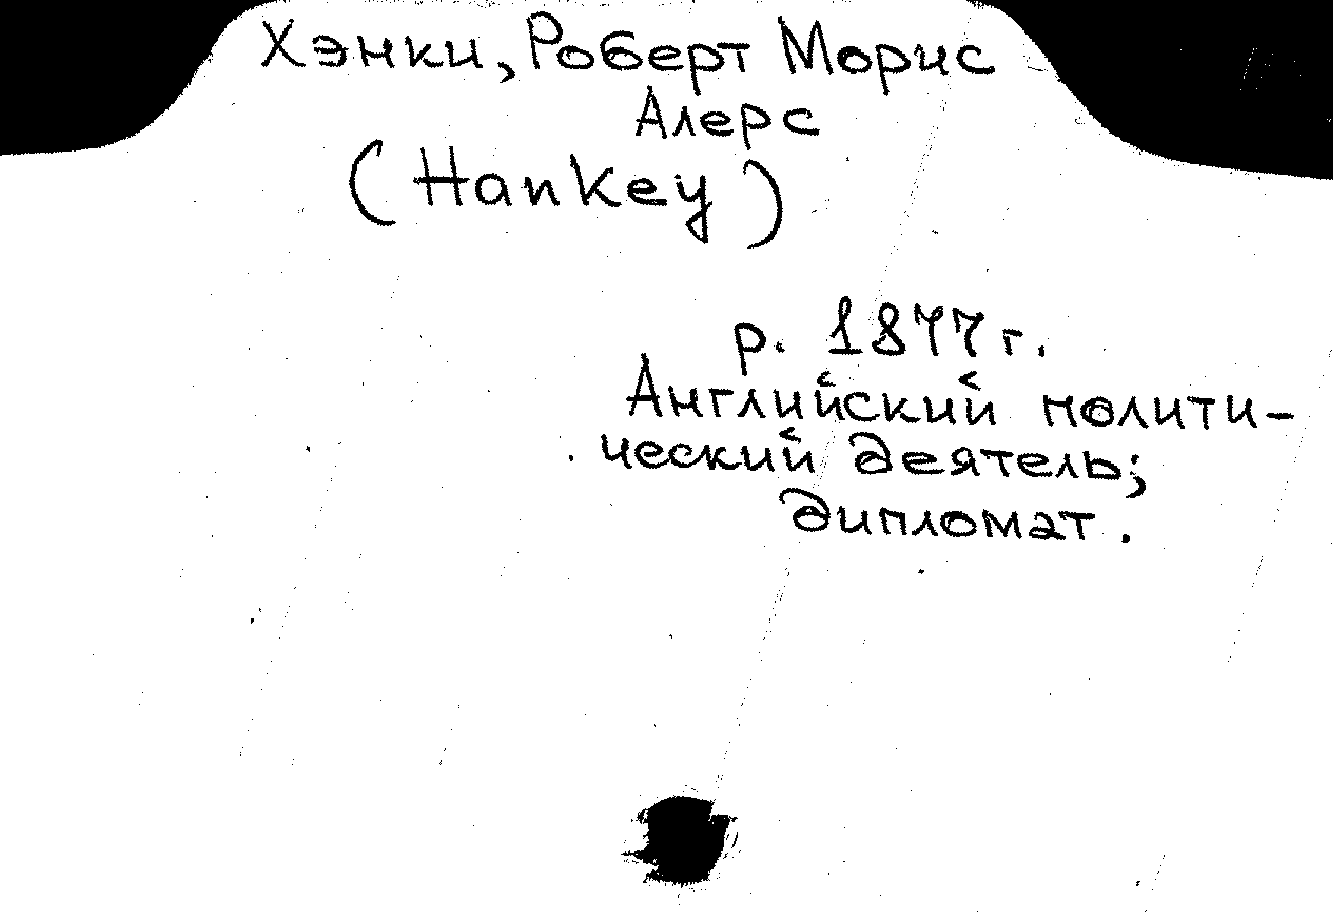 Хэнки, Роберт Морис
Алерс
(Hankey)
р. 1877 г.
Английский полити-
ческий деятель;
дипломат.